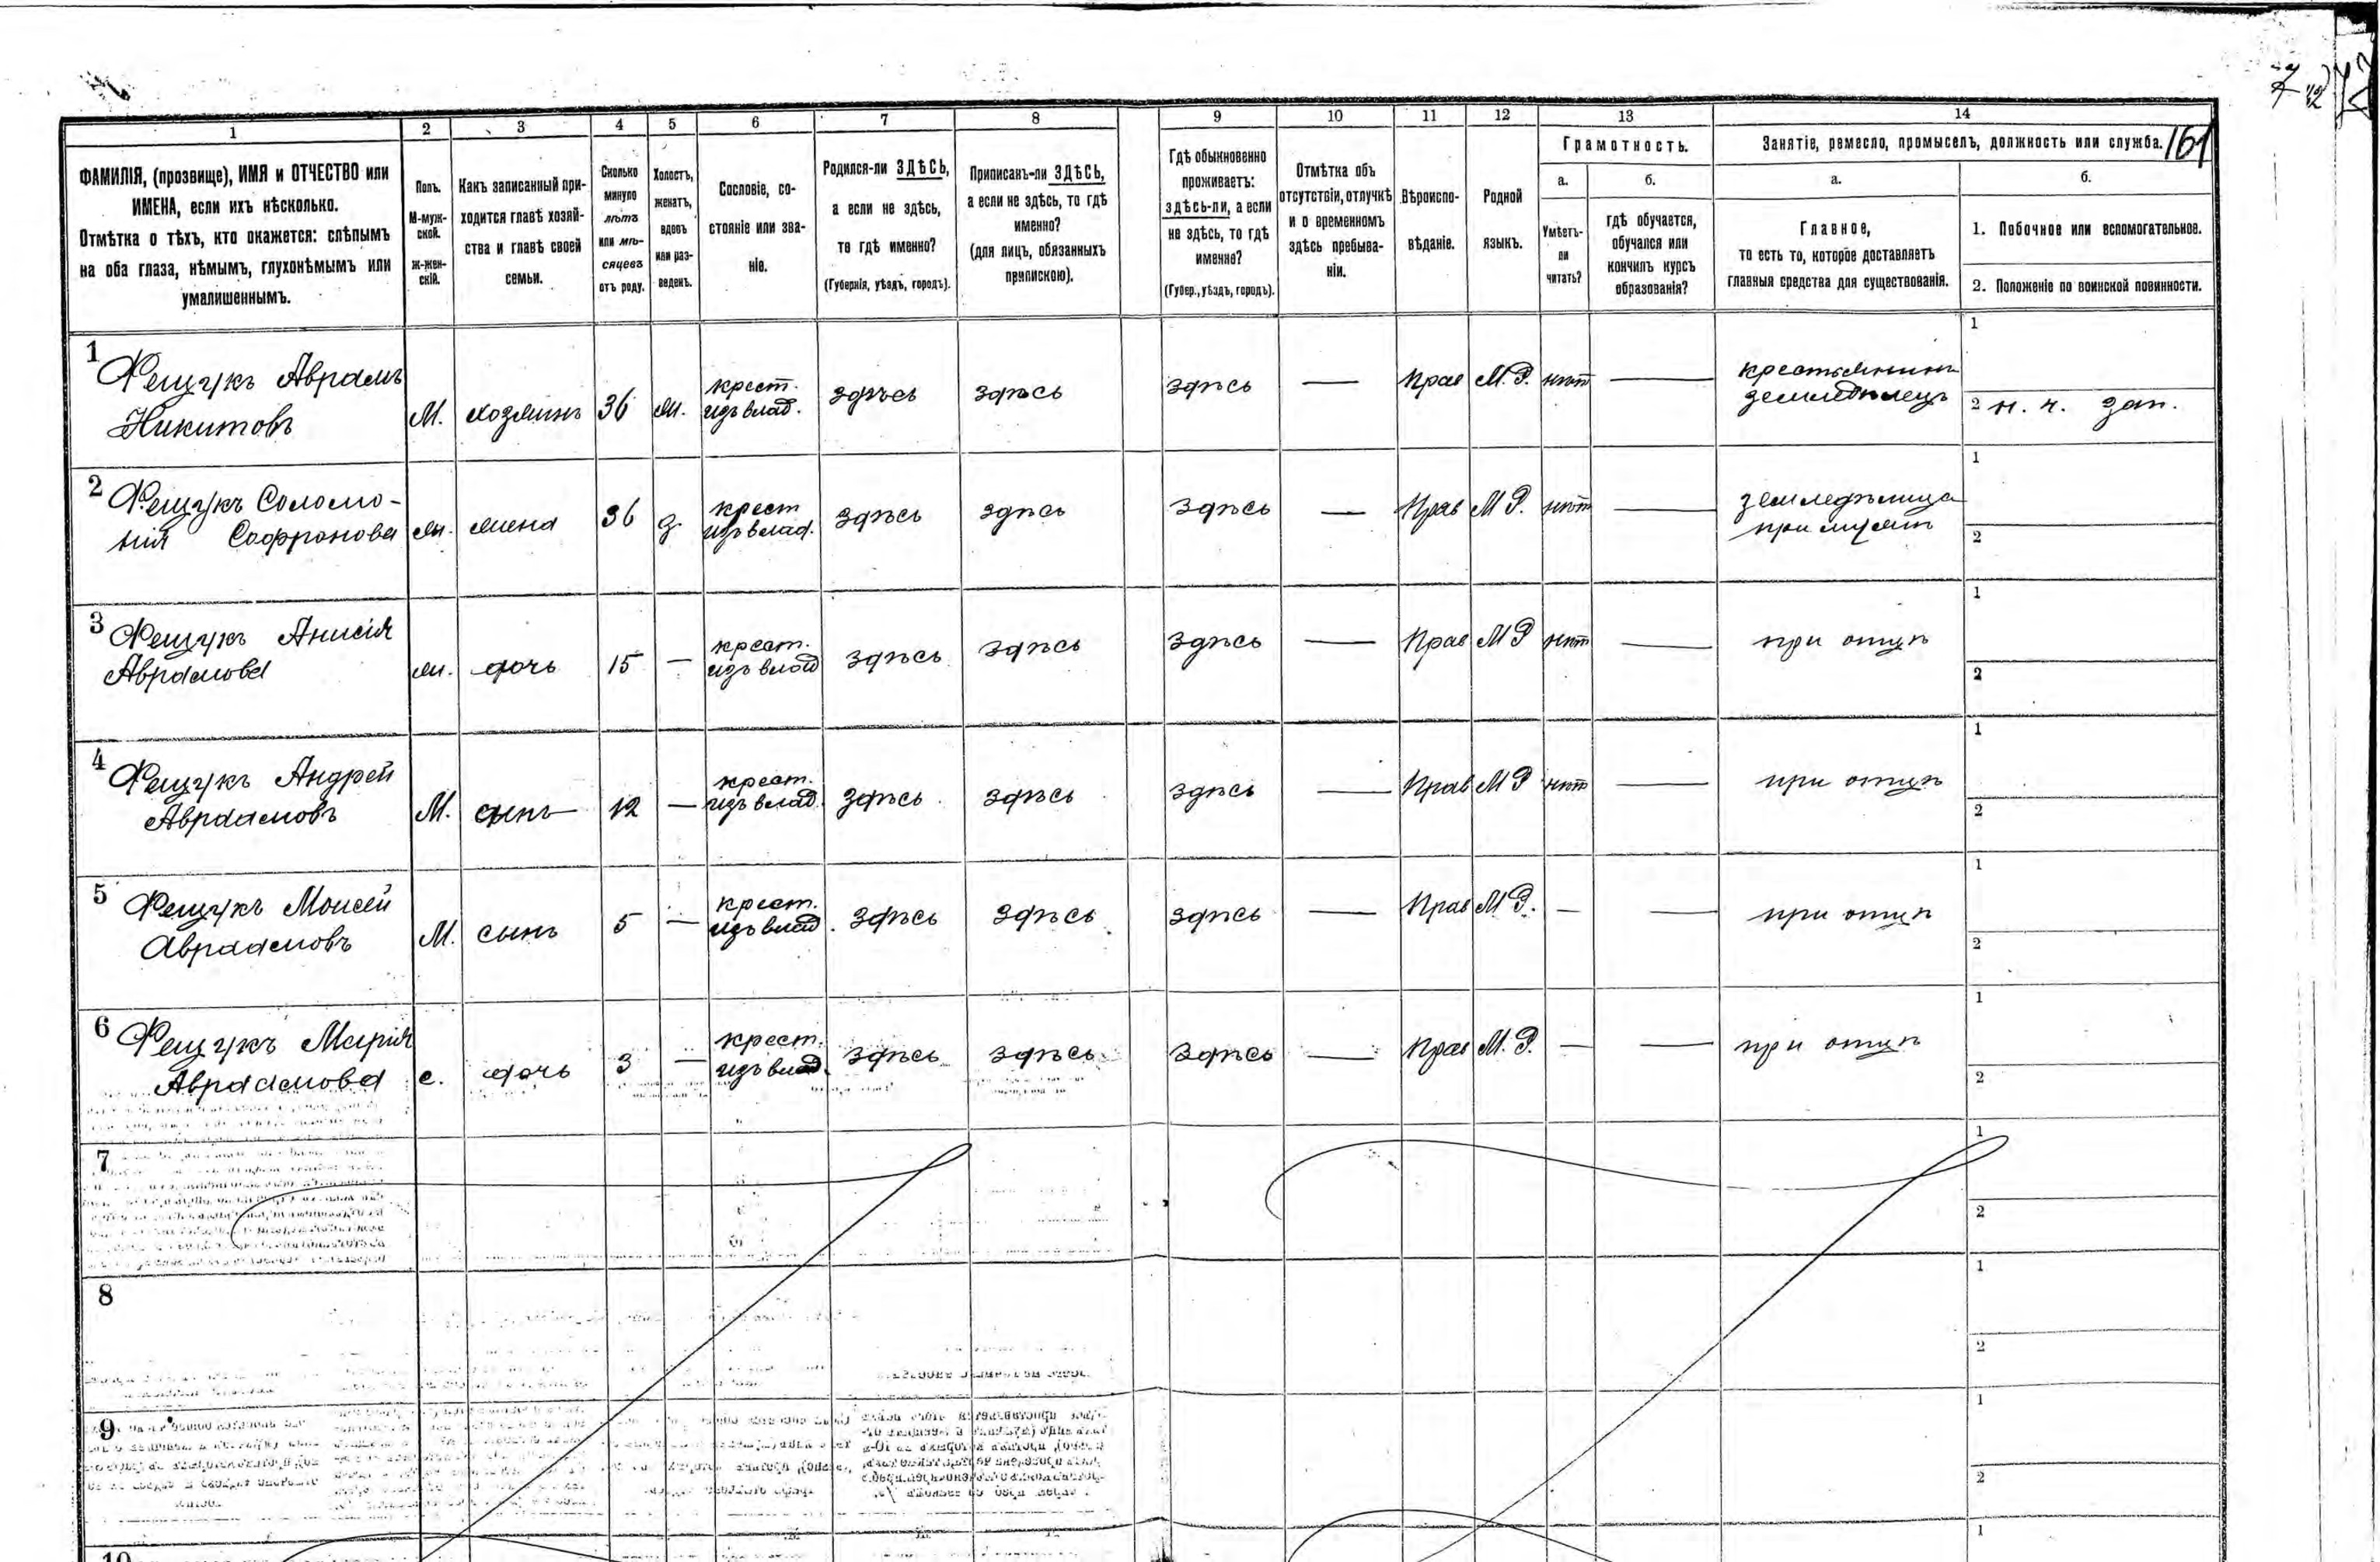 161
1 2 3 4 5 6 7 8 9 10 11 12 13 14
ФАМИЛІЯ, (прозвище), ИМЯ и ОТЧЕСТВО или
ИМЕНА, если ихъ нѣсколько.
Отмѣтка о тѣхъ, кто окажется: слѣпымъ
на оба глаза, нѣмымъ, глухонѣмымъ или
умалишеннымъ.
Полъ.
М-муж-
ской.
ж-жен-
скій.
Какъ записанный при-
ходится главѣ хозяй-
ства и главѣ своей
семьи.
Сколько
минуло
лѣтъ
или мѣ-
сяцевъ
отъ роду.
Холостъ,
женатъ,
вдовъ
или раз-
веденъ.
Сословіе, со-
стояніе или зва-
ніе.
Родился-ли ЗДѢСЬ,
а если не здѣсь,
то гдѣ именно?
(Губернія, уѣздъ, городъ).
Приписанъ-ли ЗДѢСЬ,
а если не здѣсь, то гдѣ
именно?
(для лицъ, обязанныхъ
припискою).
Гдѣ обыкновенно
проживаетъ:
здѣсь-ли, а если
не здѣсь, то гдѣ
именно?
(Губер., уѣздъ, городъ).
Отмѣтка объ
отсутствіи, отлучкѣ
и о временномъ
здѣсь пребыва-
ніи.
Вѣроиспо-
вѣданіе.
Родной
языкъ.
Грамотность.
а.
Умѣетъ-
ли
читать?
б.
гдѣ обучается,
обучался или
кончилъ курсъ
образованія?
Занятіе, ремесло, промыселъ, должность или служба.
а.
Главное,
то есть то, которое доставляетъ
главныя средства для существованія.
б.
1. Побочное или вспомогательное.
2. Положеніе по воинской повинности.
1 Фещукъ Аврамъ
Никитовъ
М. хозяинъ 36 ж. крест. изъ влад. здѣсь здѣсь здѣсь — Прав М.Р. нѣт —
крестьянинъ
земледѣлецъ
1
2 н. ч. зап.
2 Фещукъ Соломо-
нія Софронова
ж. жена 36 з. крест изъ влад. здѣсь здѣсь здѣсь — Прав М Р. нѣт —
земледѣлица
при мужѣ
1
2
3 Фещукъ Анисія
Аврамова
ж. дочь 15 — крест. изъ влад здѣсь здѣсь здѣсь — Прав М Р нѣт — при отцѣ
1
2
4 Фещукъ Андрей
Авраамовъ
М. сынъ 12 — крест. изъ влад. здѣсь здѣсь здѣсь — Прав М Р нѣт — при отцѣ
1
2
5 Фещукъ Моисей
Авраамовъ
М. сынъ 5 — крест. изъ влад. здѣсь здѣсь здѣсь — Прав М Р. — — при отцѣ
1
2
6 Фещукъ Марія
Авраамова
дочь 3 — крест. изъ влад. здѣсь здѣсь здѣсь — Прав М. Р. — — при отцѣ
1
2
7
1
2
8
1
2
9
1
2
10
1